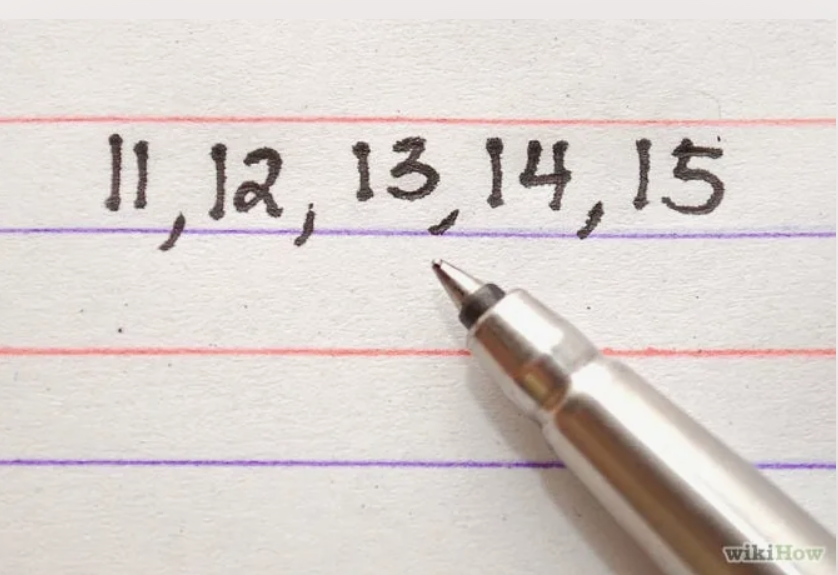 11, 12, 13, 14, 15
wikiHow